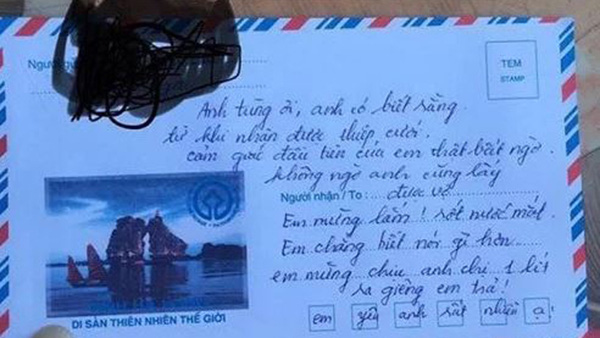 Người gửi
TEM
STAMP
Anh tùng ơi, anh có biết rằng
từ khi nhận được thiếp cưới.
cảm giác đầu tiên của em thật bất ngờ.
không ngờ anh cũng lấy
Người nhận / To: được vợ
Em mừng lắm! rớt nước mắt.
Em chẳng biết nói gì hơn
em mừng chiu anh chị 1 lít
ra giêng em trả!
em yêu anh rất nhiều ạ!
DI SẢN THIÊN NHIÊN THẾ GIỚI